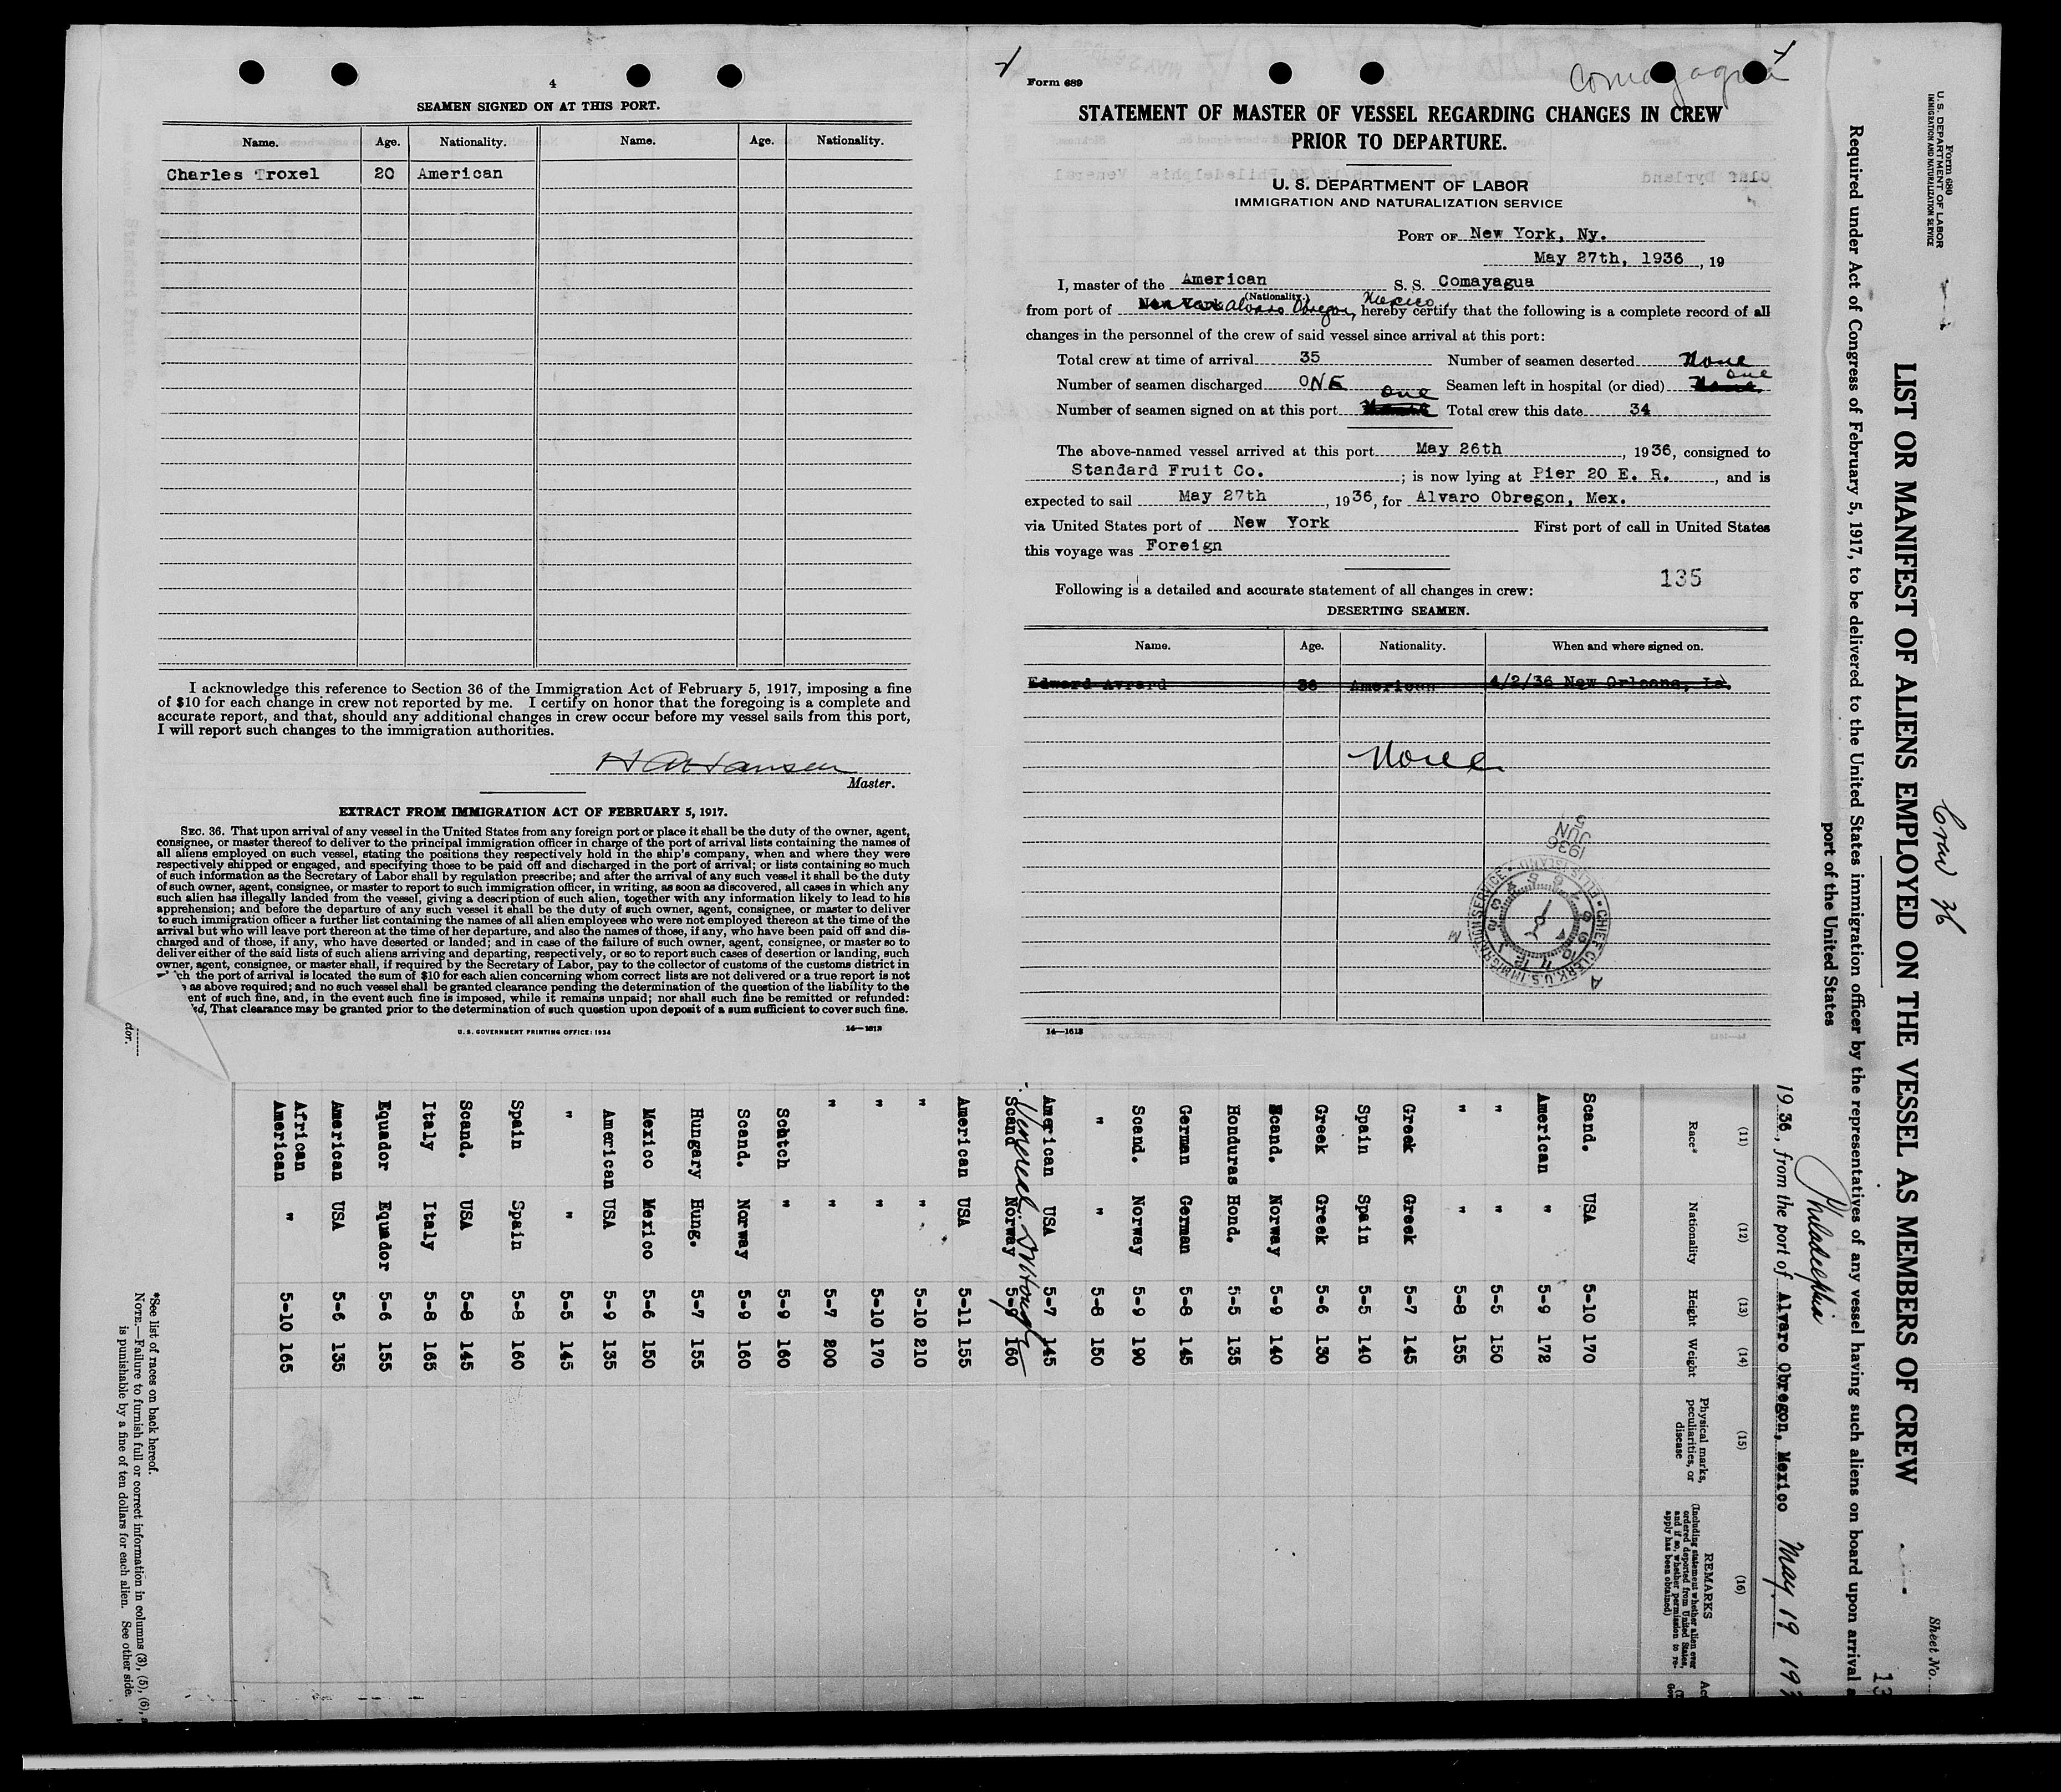 4
SEAMEN SIGNED ON AT THIS PORT.
Name. Age. Nationality. Name. Age. Nationality.
Charles Troxel 20 American
I acknowledge this reference to Section 36 of the Immigration Act of February 5, 1917, imposing a fine
of $10 for each change in crew not reported by me. I certify on honor that the foregoing is a complete and
accurate report, and that, should any additional changes in crew occur before my vessel sails from this port,
I will report such changes to the immigration authorities.
Master.
EXTRACT FROM IMMIGRATION ACT OF FEBRUARY 5, 1917.
SEC. 36. That upon arrival of any vessel in the United States from any foreign port or place it shall be the duty of the owner, agent,
consignee, or master thereof to deliver to the principal immigration officer in charge of the port of arrival lists containing the names of
all aliens employed on such vessel, stating the positions they respectively hold in the ship's company, when and where they were
respectively shipped or engaged, and specifying those to be paid off and discharged in the port of arrival; or lists containing so much
of such information as the Secretary of Labor shall by regulation prescribe; and after the arrival of any such vessel it shall be the duty
of such owner, agent, consignee, or master to report to such immigration officer, in writing, as soon as discovered, all cases in which any
such alien has illegally landed from the vessel, giving a description of such alien, together with any information likely to lead to his
apprehension; and before the departure of any such vessel it shall be the duty of such owner, agent, consignee, or master to deliver
to such immigration officer a further list containing the names of all alien employees who were not employed thereon at the time of the
arrival but who will leave port thereon at the time of her departure, and also the names of those, if any, who have been paid off and dis-
charged and of those, if any, who have deserted or landed; and in case of the failure of such owner, agent, consignee, or master so to
deliver either of the said lists of such aliens arriving and departing, respectively, or so to report such cases of desertion or landing, such
owner, agent, consignee, or master shall, if required by the Secretary of Labor, pay to the collector of customs of the customs district in
ch the port of arrival is located the sum of $10 for each alien concerning whom correct lists are not delivered or a true report is not
as above required; and no such vessel shall be granted clearance pending the determination of the question of the liability to the
ent of such fine, and, in the event such fine is imposed, while it remains unpaid; nor shall such fine be remitted or refunded:
ed, That clearance may be granted prior to the determination of such question upon deposit of a sum sufficient to cover such fine.
U. S. GOVERNMENT PRINTING OFFICE: 1934 14—1613
Form 689
Comayagua
STATEMENT OF MASTER OF VESSEL REGARDING CHANGES IN CREW
PRIOR TO DEPARTURE.
U. S. DEPARTMENT OF LABOR
IMMIGRATION AND NATURALIZATION SERVICE
PORT OF New York, Ny.
May 27th, 1936, 19
I, master of the American S. S. Comayagua
(Nationality.)
from port of New York Alvaro Obregon, Mexico, hereby certify that the following is a complete record of all
changes in the personnel of the crew of said vessel since arrival at this port:
Total crew at time of arrival 35 Number of seamen deserted None
Number of seamen discharged ONE Seamen left in hospital (or died) None one
Number of seamen signed on at this port one Total crew this date 34
The above-named vessel arrived at this port May 26th, 1936, consigned to
Standard Fruit Co.; is now lying at Pier 20 E. R., and is
expected to sail May 27th, 1936, for Alvaro Obregon, Mex.
via United States port of New York First port of call in United States
this voyage was Foreign
135
Following is a detailed and accurate statement of all changes in crew:
DESERTING SEAMEN.
Name. Age. Nationality. When and where signed on.
Edward Avrard 36 American 4/2/36 New Orleans, La.
None
1936 JUN 5
CHIEF CLERK U.S. IMMIGRATION SERVICE • ELLIS ISLAND
14—1613
Form 680
U. S. DEPARTMENT OF LABOR
IMMIGRATION AND NATURALIZATION SERVICE
Sheet No.
LIST OR MANIFEST OF ALIENS EMPLOYED ON THE VESSEL AS MEMBERS OF CREW
Required under Act of Congress of February 5, 1917, to be delivered to the United States immigration officer by the representatives of any vessel having such aliens on board upon arrival a
port of the United States
Philadelphia
1936, from the port of Alvaro Obregon, Mexico May 19 193
(11) (12) (13) (14) (15) (16)
Race* Nationality Height Weight Physical marks, peculiarities, or disease REMARKS
(Including statement whether alien ever ordered deported from United States, and if so, whether permission to re-apply has been obtained)
Scand. USA 5-10 170
American " 5-9 172
" " 5-5 150
" " 5-8 155
Greek Greek 5-7 145
Spain Spain 5-5 140
Greek Greek 5-6 130
Scand. Norway 5-9 140
Honduras Hond. 5-5 135
German German 5-8 145
Scand. Norway 5-9 190
" " 5-8 150
American USA 5-7 145
Scand Norway 5-9 160
American USA 5-11 155
" " 5-10 210
" " 5-10 170
" " 5-7 200
Scotch " 5-9 160
Scand. Norway 5-9 160
Hungary Hung. 5-7 155
Mexico Mexico 5-6 150
American USA 5-9 135
" " 5-5 145
Spain Spain 5-8 160
Scand. USA 5-8 145
Italy Italy 5-8 165
Equador Equador 5-6 155
American USA 5-6 135
African American " 5-10 165
*See list of races on back hereof.
NOTE.—Failure to furnish full or correct information in columns (3), (5), (6), a
is punishable by a fine of ten dollars for each alien. See other side.